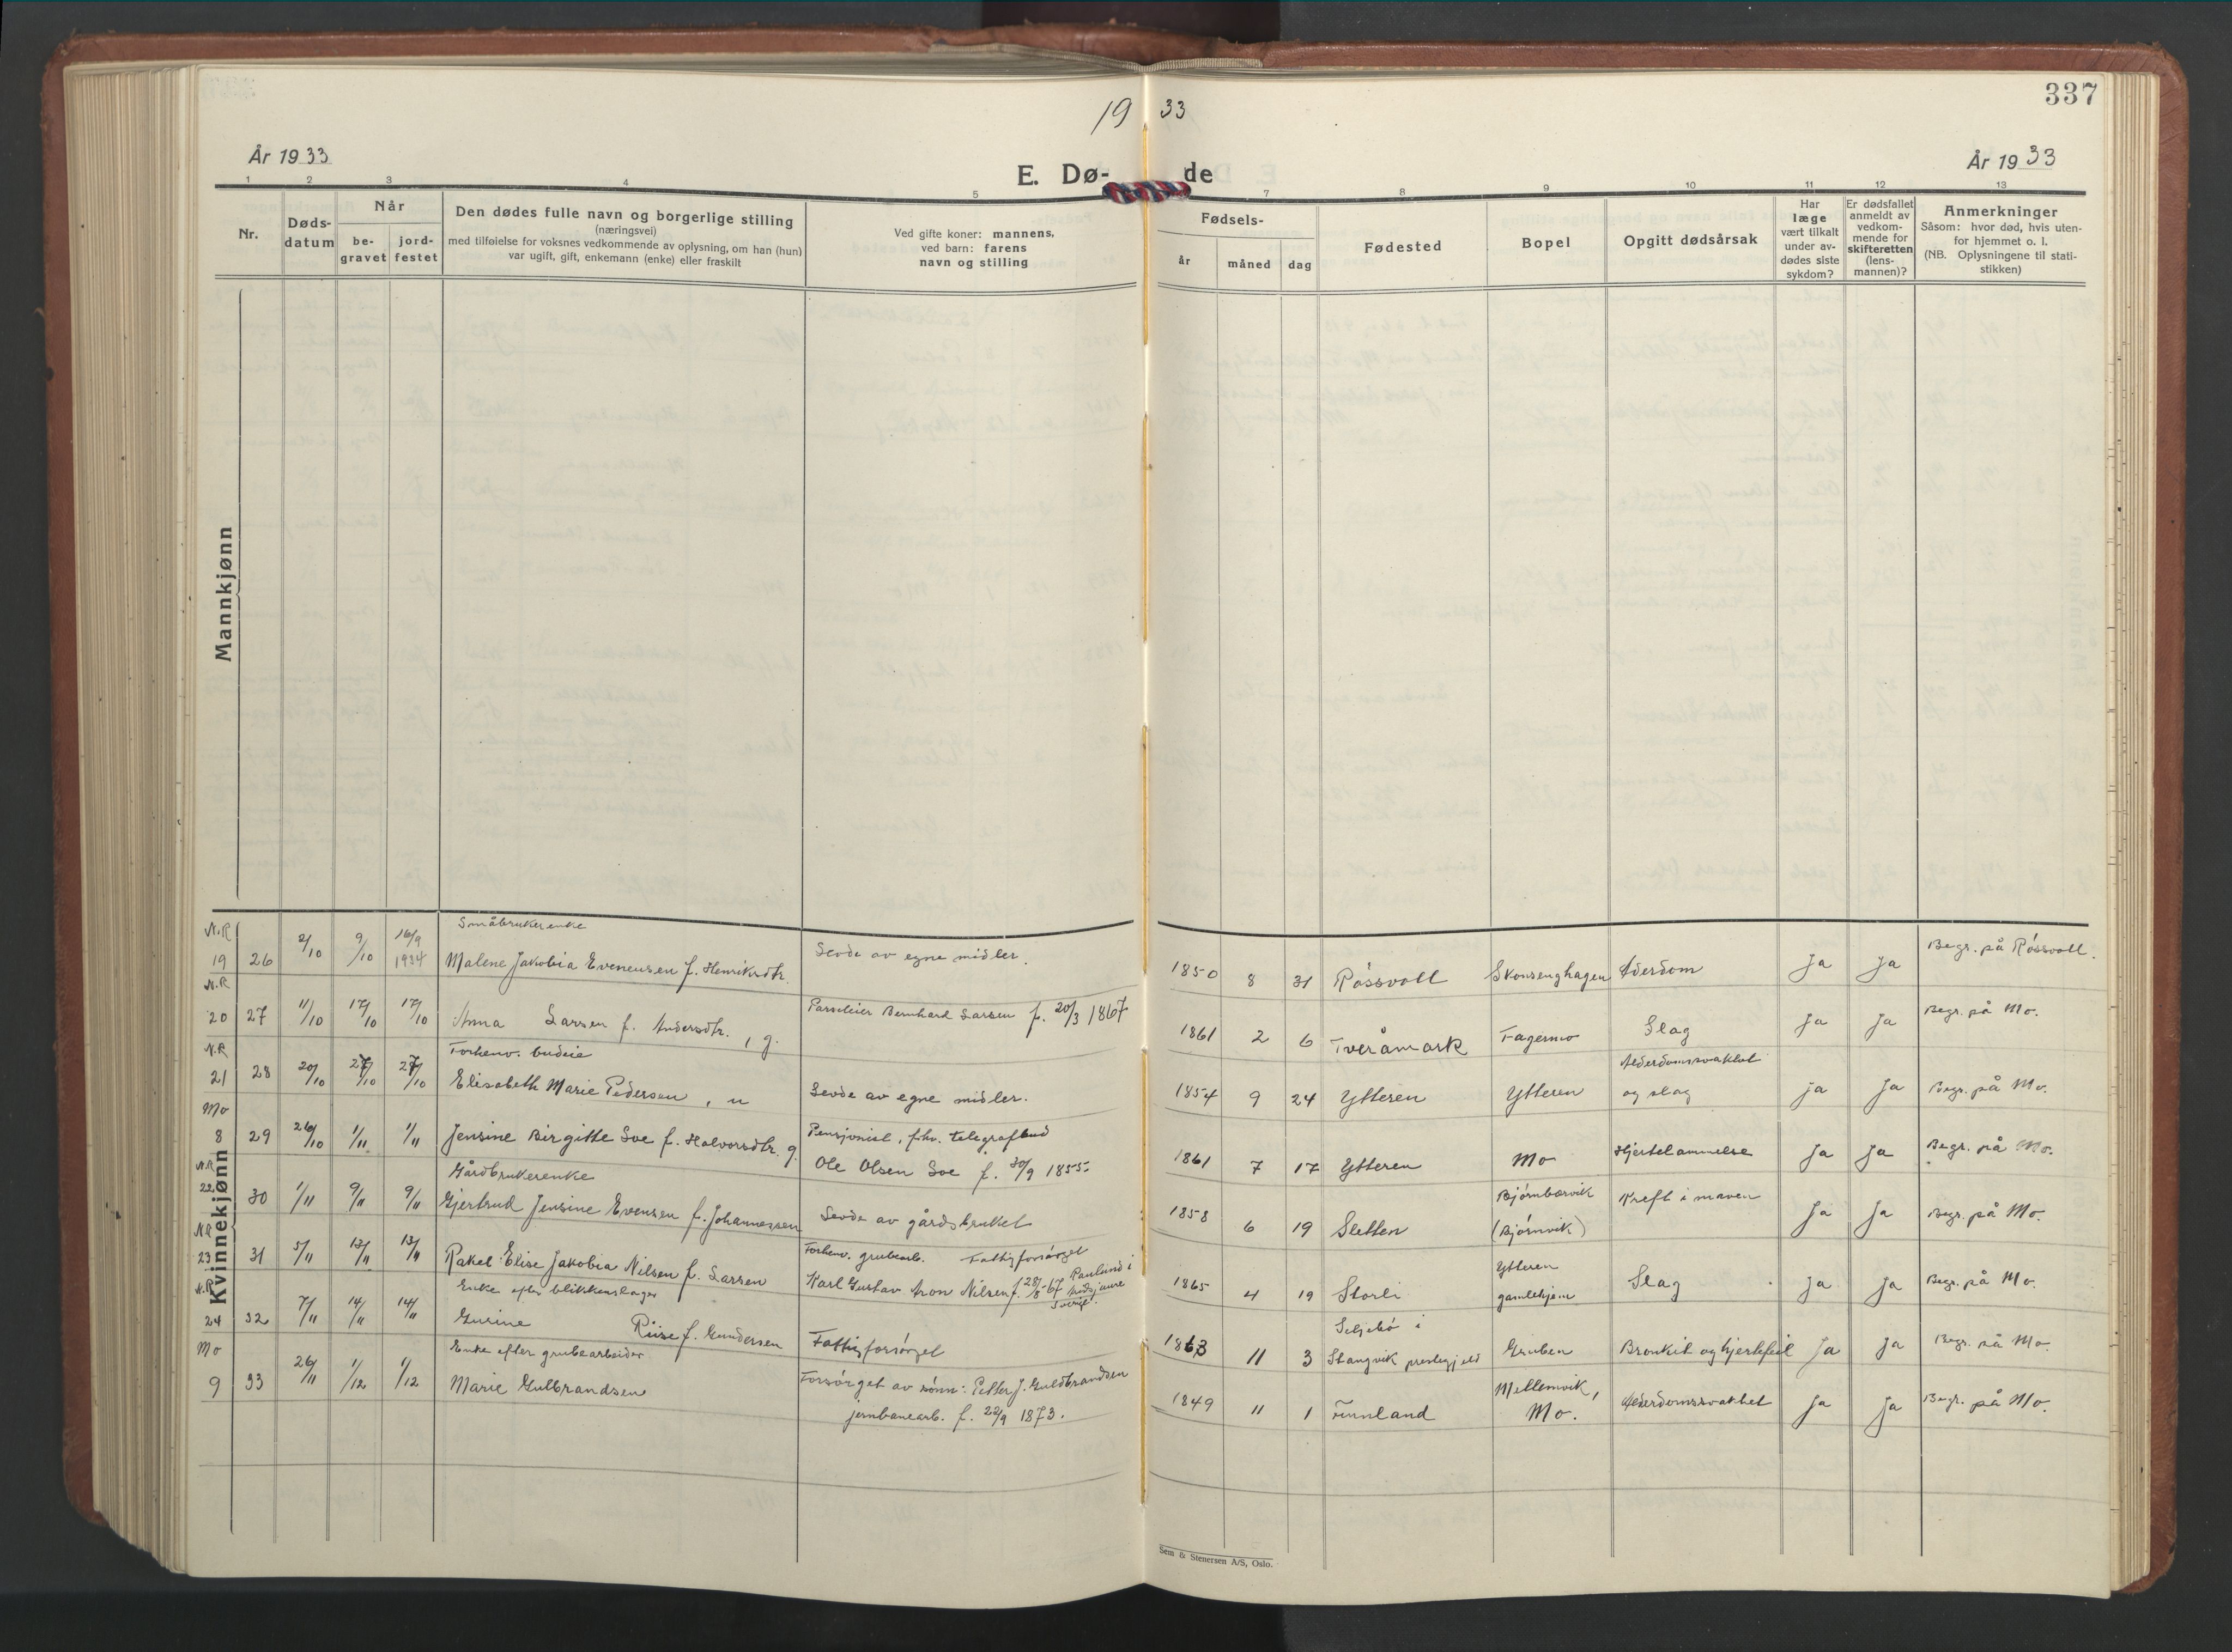 337
19 33
År 1933
År 1933
E. Dø- de
1 2 3 4 5 7 8 9 10 11 12 13
Nr.
Døds-
datum
Når
be-
gravet
jord-
festet
Den dødes fulle navn og borgerlige stilling
(næringsvei)
med tilføielse for voksnes vedkommende av oplysning, om han (hun)
var ugift, gift, enkemann (enke) eller fraskilt
Ved gifte koner: mannens,
ved barn: farens
navn og stilling
Fødsels-
år måned dag
Fødested
Bopel
Opgitt dødsårsak
Har
læge
vært tilkalt
under av-
dødes siste
sykdom?
Er dødsfallet
anmeldt av
vedkom-
mende for
skifteretten
(lens-
mannen)?
Anmerkninger
Såsom: hvor død, hvis uten-
for hjemmet o. l.
(NB. Oplysningene til stati-
stikken)
Mannkjønn
Kvinnekjønn
N.R 16/9 Småbrukerenke
19 26 2/10 9/10 1934 Malene Jakobia Evensen f. Henriksdtr. Levde av egne midler. 1850 8 31 Røssvoll Skonsenghagen Alderdom Ja Ja Begr. på Røssvoll.
N.R
20 27 11/10 17/10 17/10 Anna Larsen f. Andersdtr., g. Parseleier Bernhard Larsen f. 20/3 1867 1861 2 6 Tveråmark Fagermo Slag Ja Ja Begr. på Mo.
N.R Forhenv. budeie Alderdomssvakhet
21 28 20/10 27/10 27/10 Elisabeth Marie Pedersen, u Levde av egne midler. 1854 9 24 Ytteren Ytteren og slag Ja Ja Begr. på Mo.
Mo Pensjonist, fhv. telegrafbud
8 29 26/10 1/11 1/11 Jensine Birgitte Soe f. Halvorsdtr. g. Ole Olsen Soe f. 30/9 1855 1861 7 17 Ytteren Mo Hjertelammelse Ja Ja Begr. på Mo.
N.R Gårdbrukerenke Bjørnbærvik
22 30 1/11 9/11 9/11 Gjertrud Jensine Evensen f. Johannessen Levde av gårdsbruket 1858 6 19 Sletten (Bjørnvik) Kreft i maven Ja Ja Begr. på Mo.
N.R Forhenv. grubearb. Fattigforsørget Ytteren
23 31 5/11 13/11 13/11 Rakel Elise Jakobia Nilsen f. Larsen Karl Gustav Aron Nilsen f. 28/8-67 1865 4 19 Storli gamlehjem Slag Ja Ja Begr. på Mo.
Sverige.
N.R Enke efter blikkenslager Seljebø i
24 32 7/11 14/11 14/11 Gurine Riise f. Gundersen Fattigforsørget 1863 11 3 Stangvik prestegjeld Gruben Bronkit og hjertefeil Ja Ja Begr. på Mo.
Mo Enke efter grubearbeider Mellemvik,
9 33 26/11 1/12 1/12 Marie Gulbrandsen Forsørget av sønn: Petter J. Guldbrandsen 1849 11 1 Finnland Mo. Alderdomssvakhet Ja Ja Begr. på Mo.
jernbanearb. f. 22/9 1873.
Sem & Stenersen A/S, Oslo.